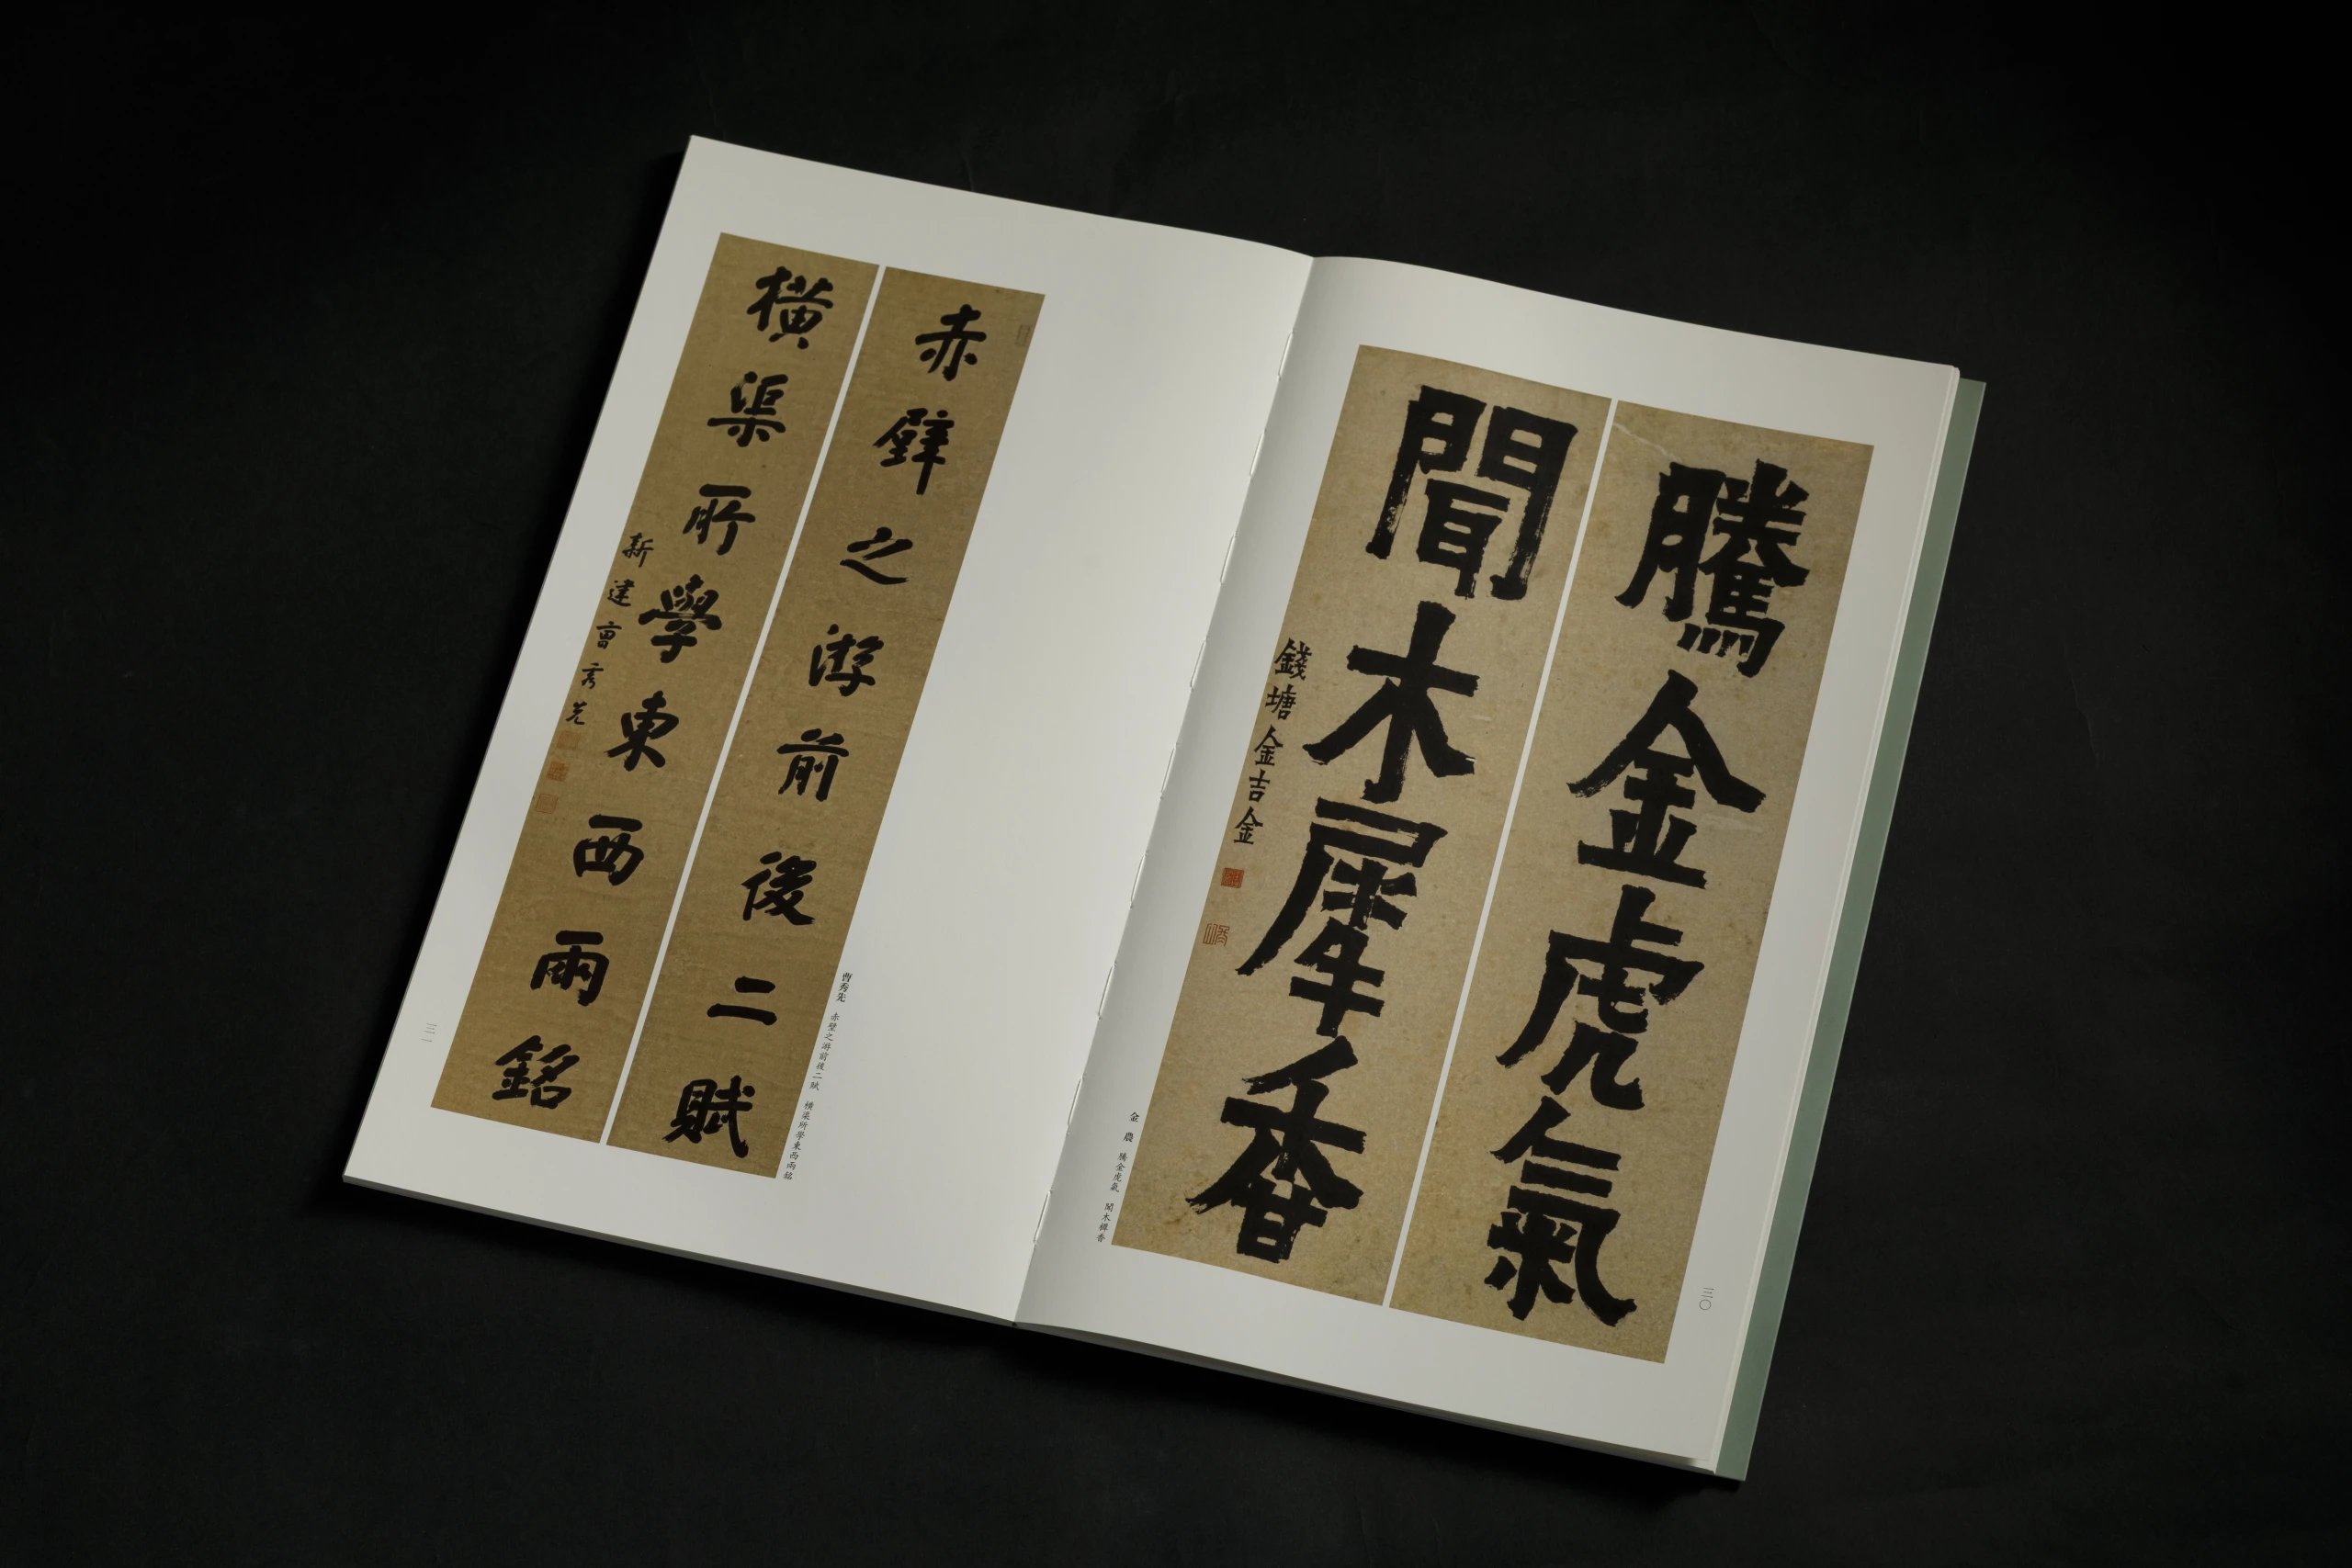 騰金虎氣
聞木犀香
錢塘金吉金
金農 騰金虎氣 聞木樨香
三〇
赤壁之游前後二賦
橫渠所學東西兩銘
新建曹秀先
曹秀先 赤壁之游前後二賦 橫渠所學東西兩銘
三一